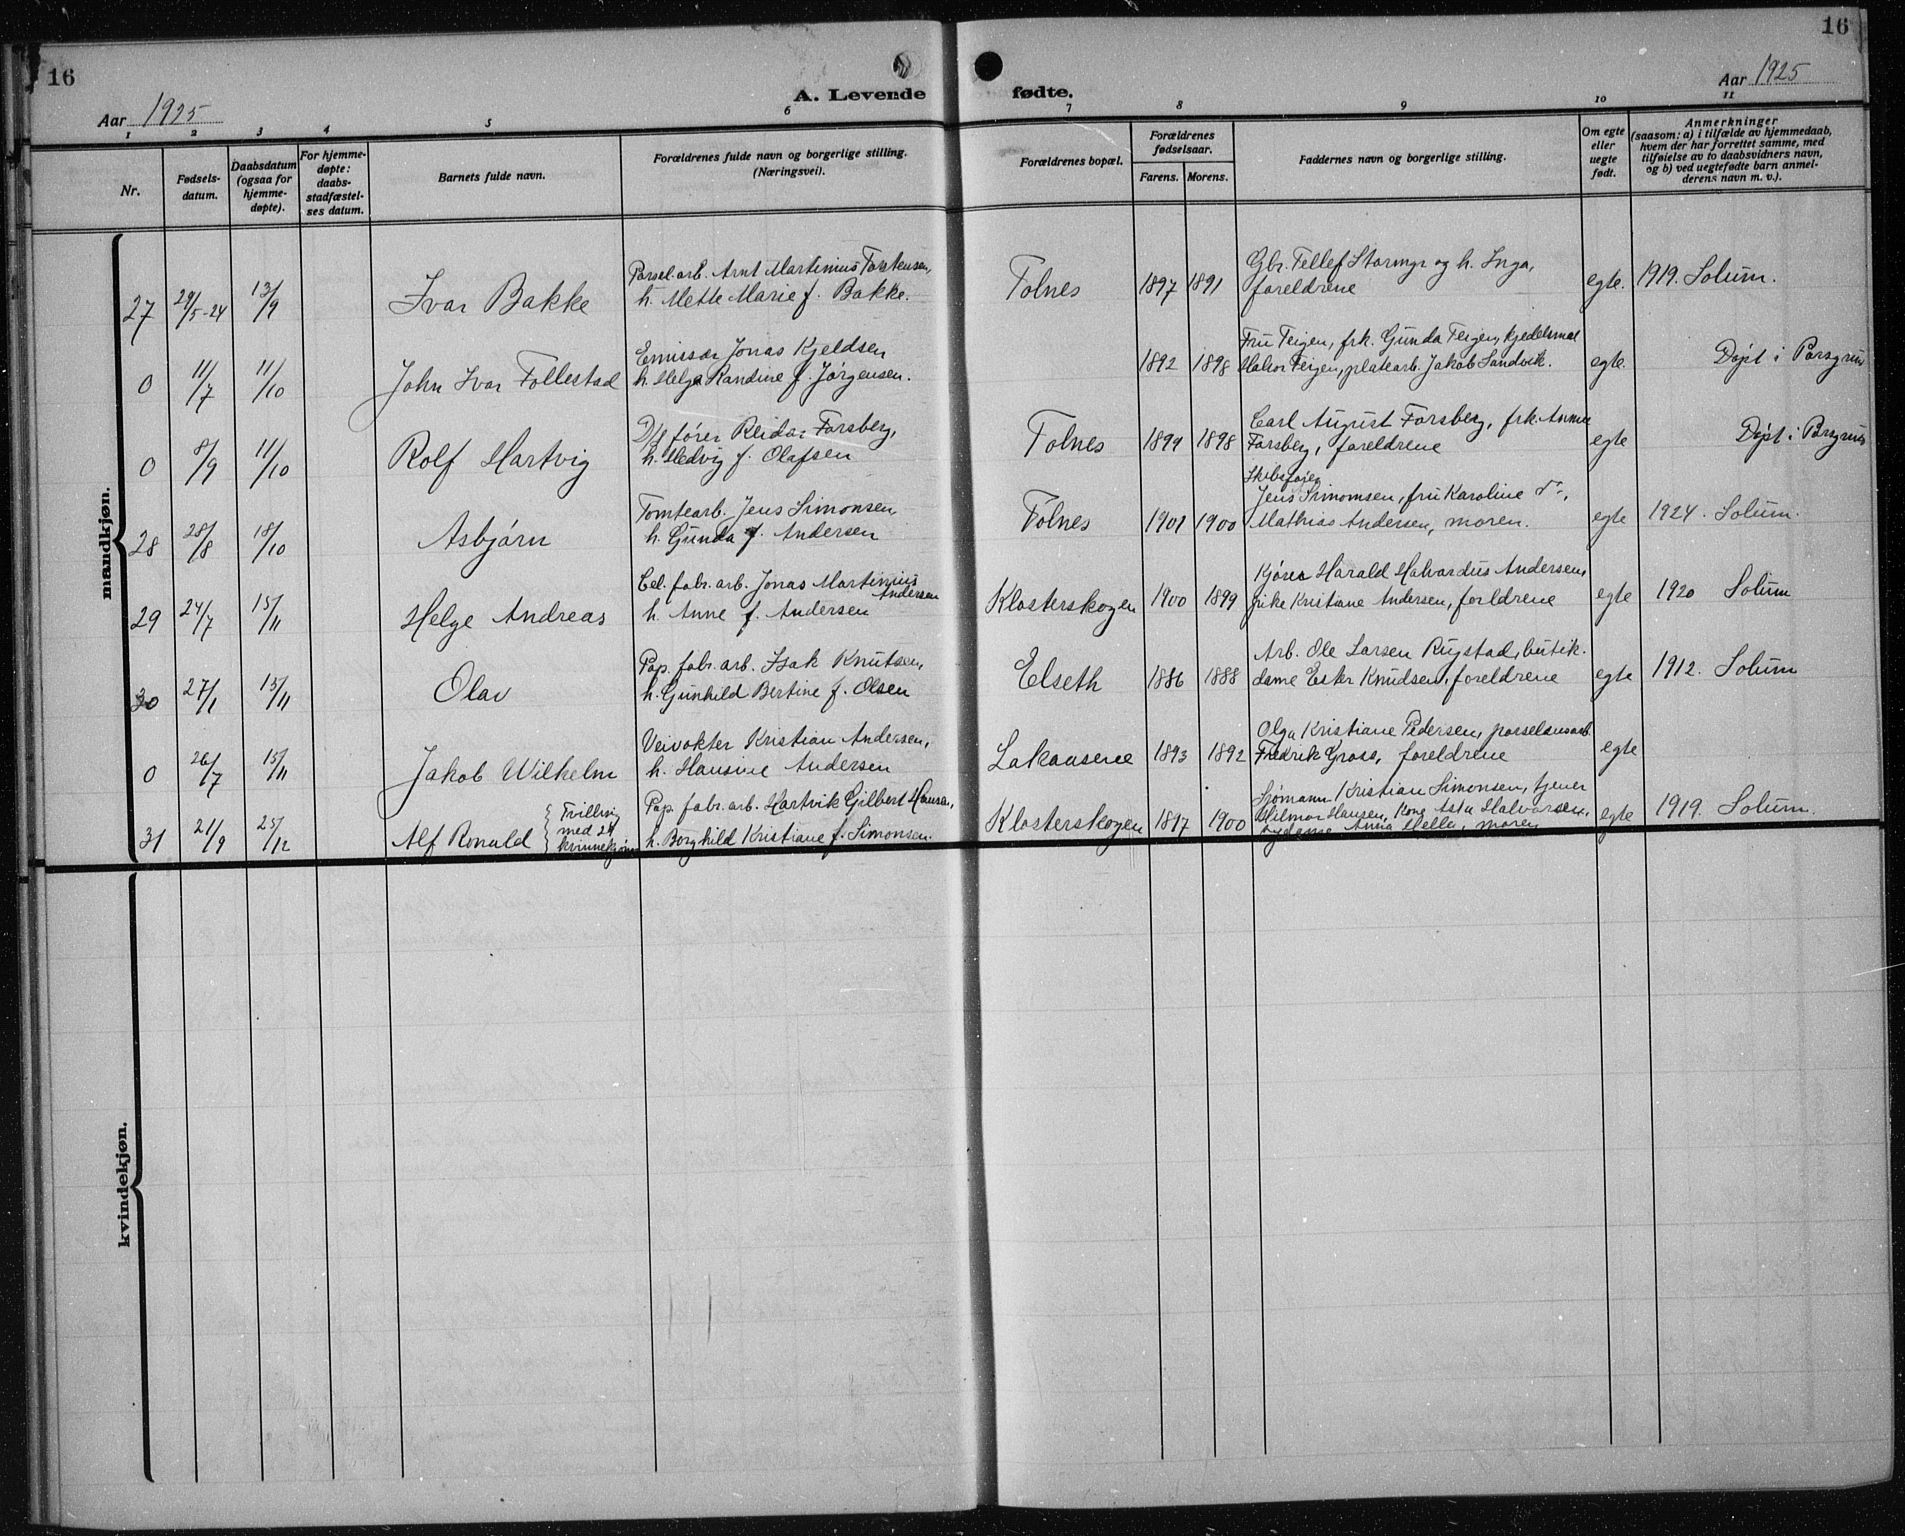 16
16
Aar 1925
A. Levende fødte.
Aar 1925
1 2 3 4 5 6 7 8 9 10 11
Nr.
Fødsels-
datum.
Daabsdatum
(ogsaa for
hjemme-
døpte).
For hjemme-
døpte:
daabs-
stadfæstel-
ses datum.
Barnets fulde navn.
Forældrenes fulde navn og borgerlige stilling.
(Næringsvei).
Forældrenes bopæl.
Forældrenes
fødselsaar.
Farens. Morens.
Faddernes navn og borgerlige stilling.
Om egte
eller
uegte
født.
Anmerkninger
(saasom: a) i tilfælde av hjemmedaab,
hvem der har forrettet samme, med
tilføielse av to daabsvidners navn,
og b) ved uegtefødte barn anmel-
derens navn m. v.).
mandkjøn.
27 29/5-24 13/9 Ivar Bakke
Porsel. arb. Arnt Martinius Torstensen,
h. Mette Marie f. Bakke.
Tolnes 1897 1891
Gbr. Tellef Stormyr og h. Inga,
foreldrene
egte. 1919. Solum.
0 11/7 11/10 John Ivar Follestad
Emissær Jonas Kjeldsen
h. Helga Randine f. Jørgensen.
1892 1898
Fru Teigen, frk. Gunda Teigen, kjedelsmed
Halvor Teigen, platearb. Jakob Sandvik.
egte. Døpt i Porsgrun
0 8/9 11/10 Rolf Hartvig
D/s fører Reidar Forsberg,
h. Hedvig f. Olafsen
Tolnes 1899 1898
Carl August Forsberg, frk. Anna
Forsberg, foreldrene
egte Døpt i Porsgrun
28 28/8 18/10 Asbjørn
Tomtearb. Jens Simonsen,
h. Gunda f. Andersen
Tolnes 1901 1900
Skibsfører
Jens Simonsen, fru Karoline do,
Mathias Andersen, moren.
egte 1924. Solum.
29 24/7 15/11 Helge Andreas
Cel. fabr. arb. Jonas Martinius
Andersen
h. Anne f. Andersen
Klosterskogen 1900 1899
Kjører Harald Halvardus Andersen,
frk Kristiane Andersen, forldrene
egte 1920 Solum
30 27/1 15/11 Olav
Pap. fabr. arb. Isak Knutsen,
h. Gunhild Bertine f. Olsen
Elseth 1886 1888
Arb. Ole Larsen Rugstad, butik-
dame Ester Knudsen, foreldrene
egte 1912. Solum
0 26/7 15/11 Jakob Wilhelm
Veivokter Kristian Andersen,
h. Hansine Andersen
Lakaasene 1893 1892
Olga Kristiane Pedersen, porselensarb.
Fredrik Gross, foreldrene
egte
31 21/9 25/12 Alf Ronald
Tvilling
med 24
kvinnekjøn
Pap. fabr. arb. Hartvik Gilbert Hansen,
h. Borghild Kristiane f. Simonsen.
Klosterskogen 1897 1900
Sjømann Kristian Simonsen, tjener
Hilmar Hansen, Kone Asta Halvorsen,
sydame Anna Hella, moren
egte 1919. Solum.
kvindekjøn.